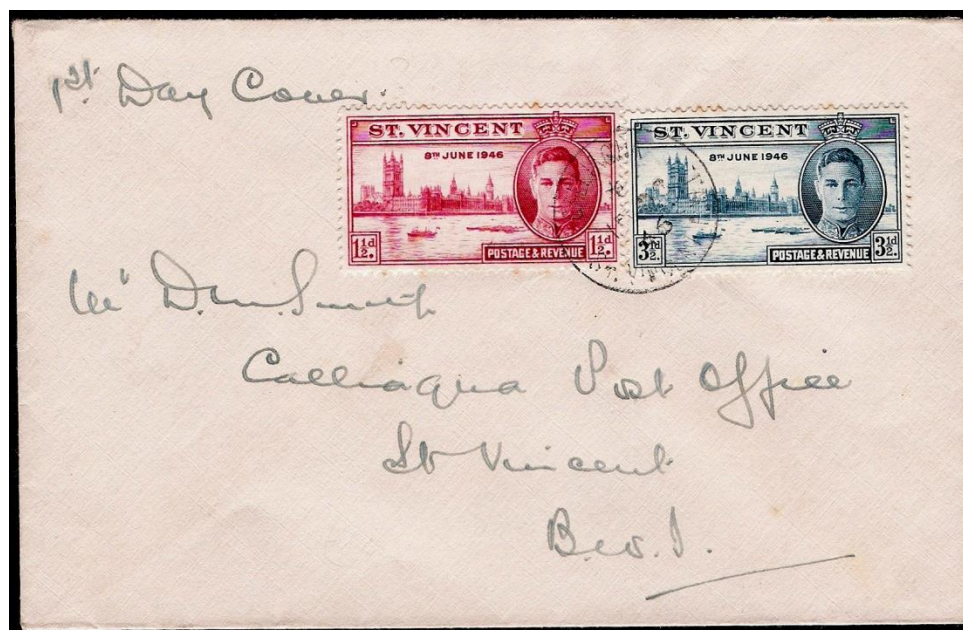 1st. Day Cover.
ST. VINCENT
8TH JUNE 1946
1½d.
1½d.
POSTAGE & REVENUE
ST. VINCENT
8TH JUNE 1946
3½d.
3½d.
POSTAGE & REVENUE
Mr
Calliaqua Post Office
St Vincent
B.W.I.